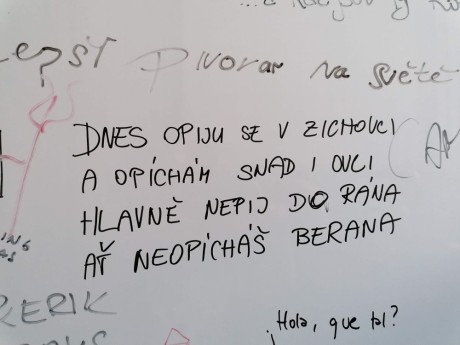 Pivovar na světě
DNES OPIJU SE V ZICHOVCI
A OPÍCHÁM SNAD I OVCI
HLAVNĚ NEPIJ DO RÁNA
AŤ NEOPÍCHÁŠ BERANA
¡Hola, que tal?